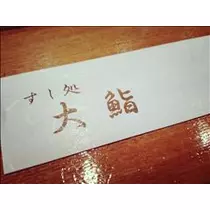 すし処
大鮨